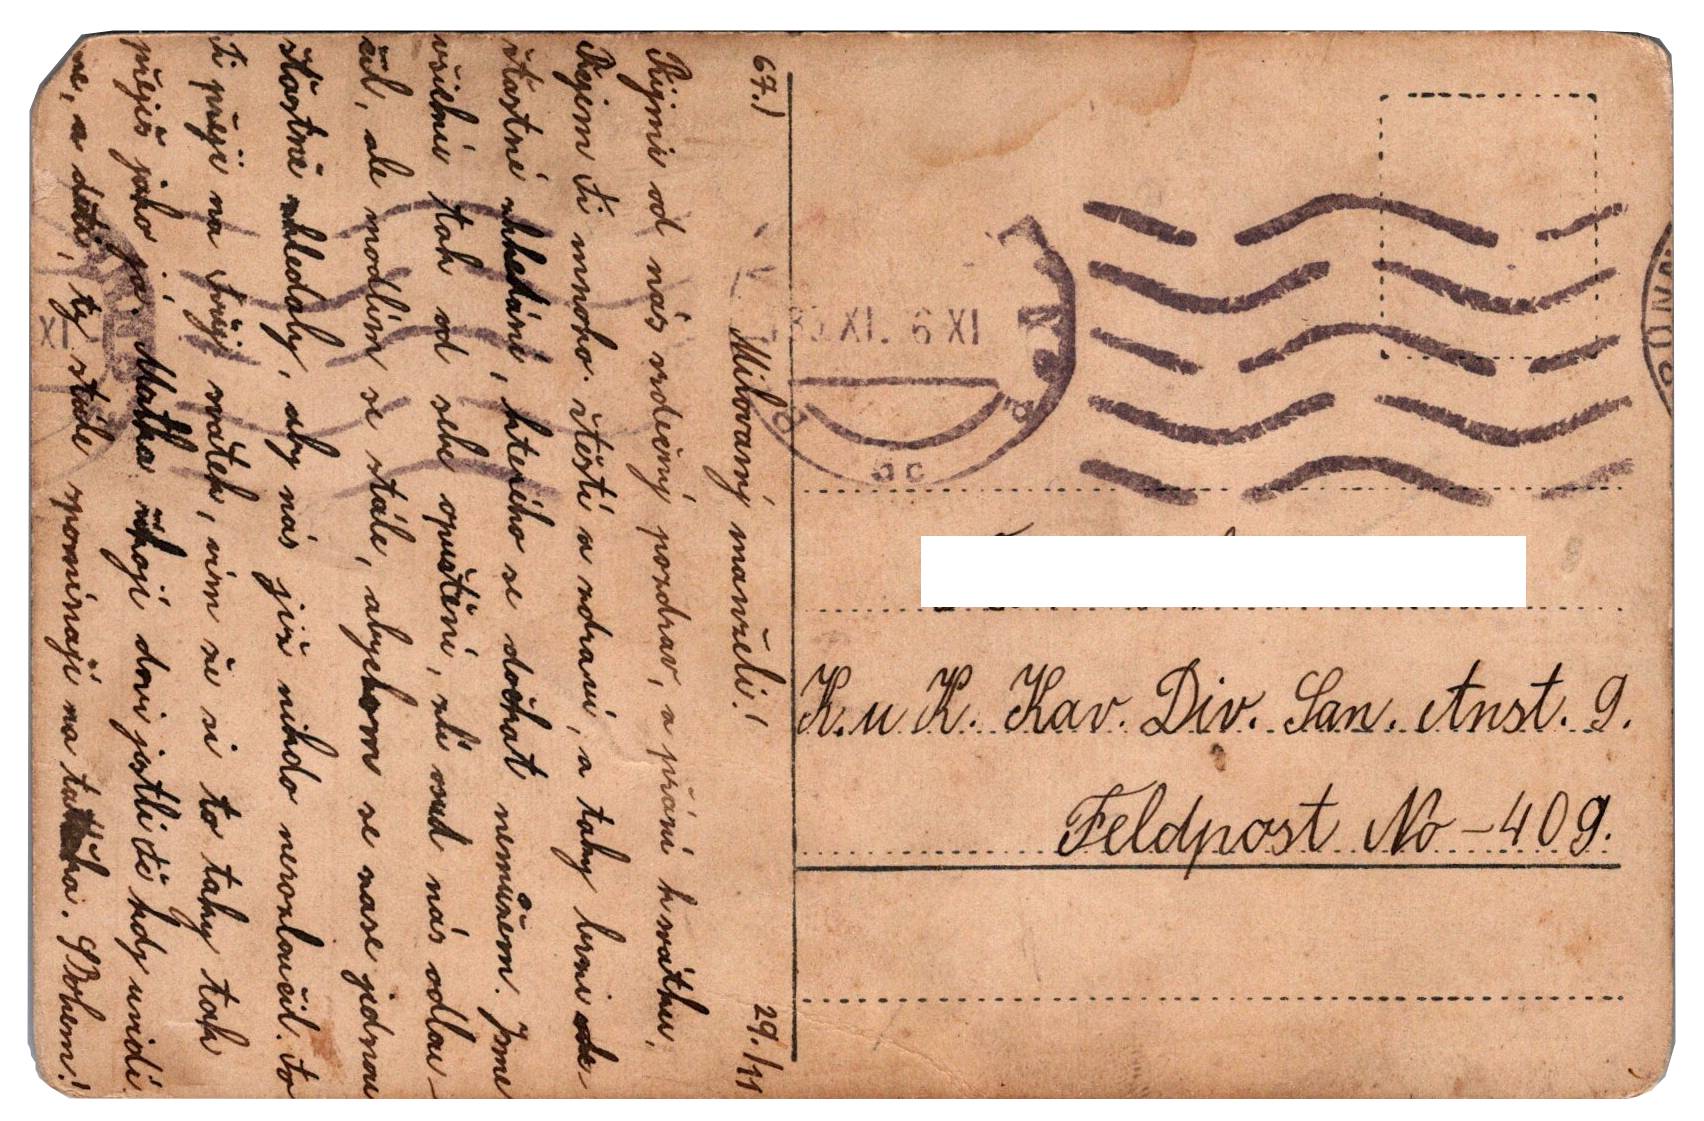 67.) 29./11
Milovaný manželi!
Přijmi od nás srdečný pozdrav, a přání k svátku,
Přejem ti mnoho štěstí a zdraví, a taky brzni
štastné shledání, kterého se dočkat nemůžem. Jsme
všichni tak od sebe opuštění, zlí osud nás odlou-
čil, ale modlím se stále, abychom se zase jednou
štastně shledaly, aby nás již nikdo nerozloučil. to
ti přeji na tvůj svátek, vím že si to taky tak
přeješ jako já. Matka dovi jestli tě kdy uvidí
ne, a děti, ty stále zpomínají na tatíčka. SBohem!
XI
XI. 6 XI
K. u K. Kav. Div. San. Anst. 9.
Feldpost No - 409.